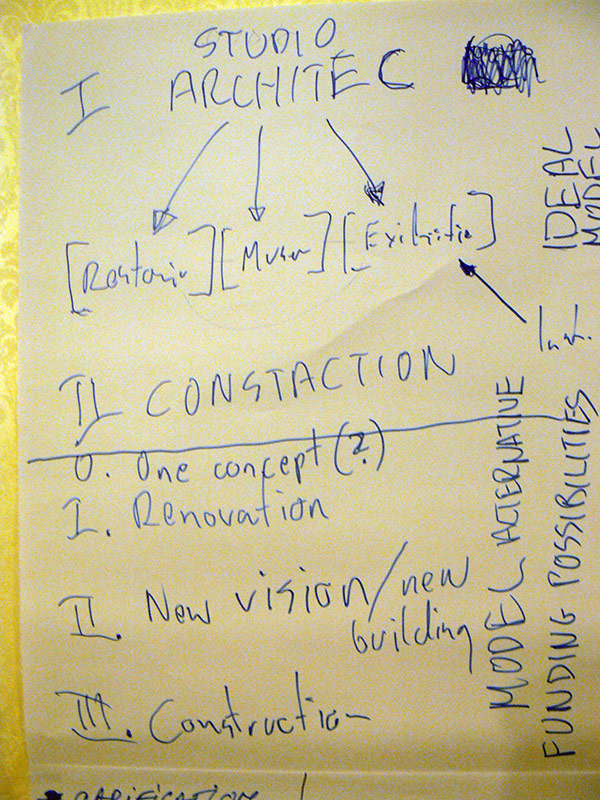 STUDIO
I ARCHITEC
[Restorin] [Museu] [Exihsitin]
Inst.
IDEAL
MODEL
II CONSTACTION
0. One concept (?)
I. Renovation
II. New vision/new
building
III. Construction
MODEL ALTERNATIVE
FUNDING POSSIBILITIES